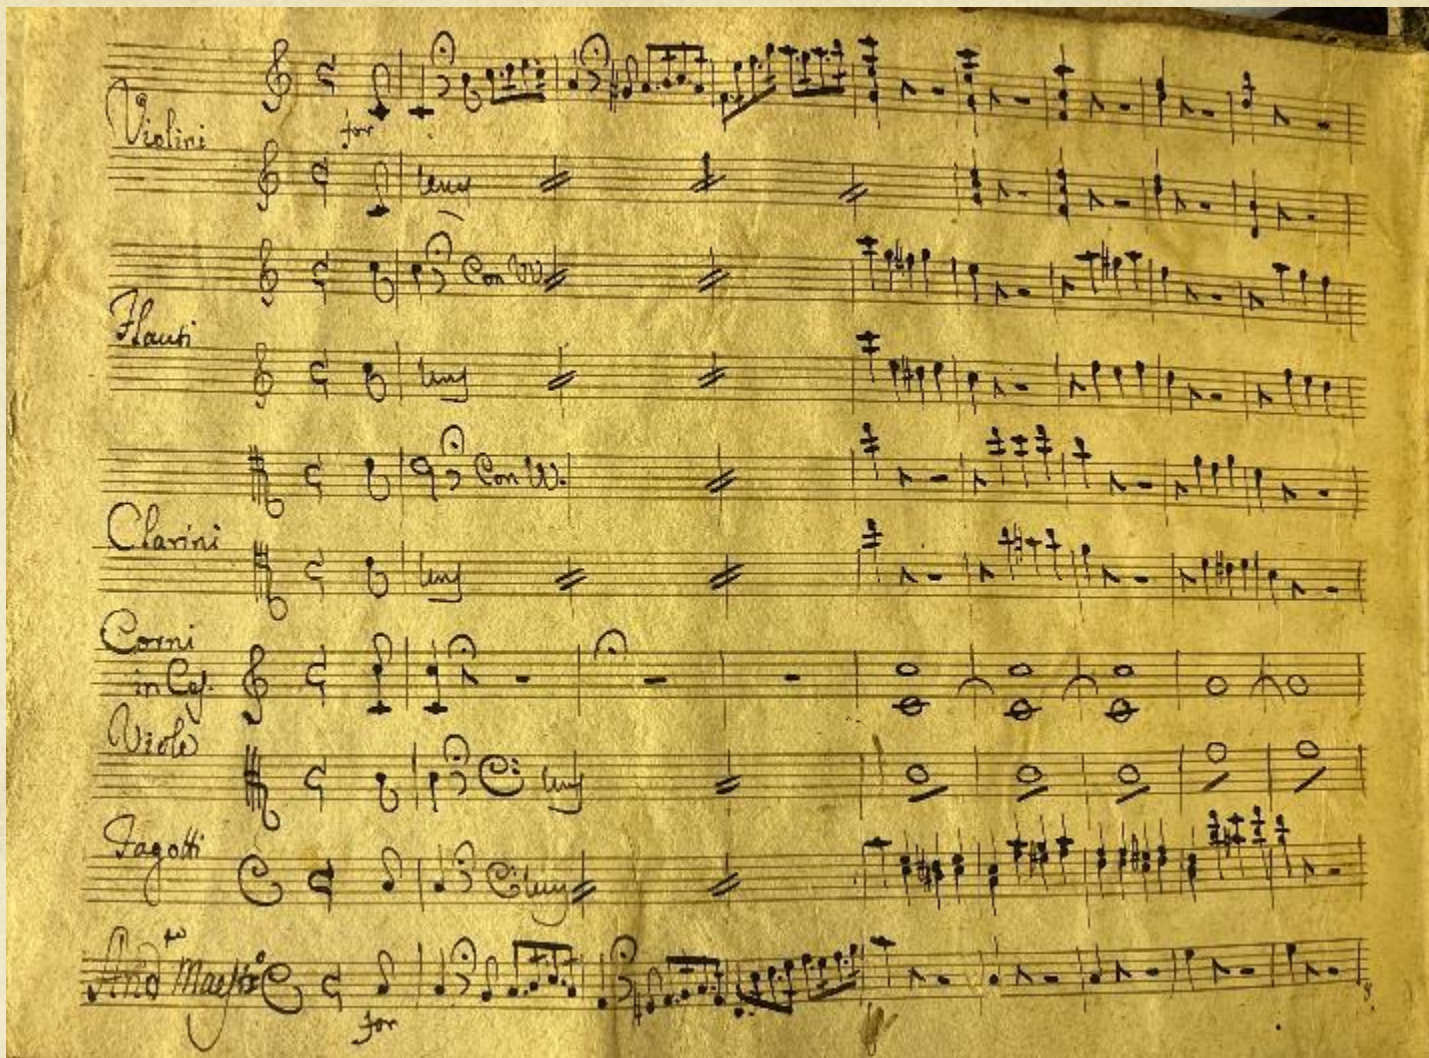 Violini
for
unis
Flauti
Con VV.
unis
Clarini
Con VV.
unis
Corni
in Ces.
Viole
C: unis
Fagotti
C: unis
And.te Maest.o
for